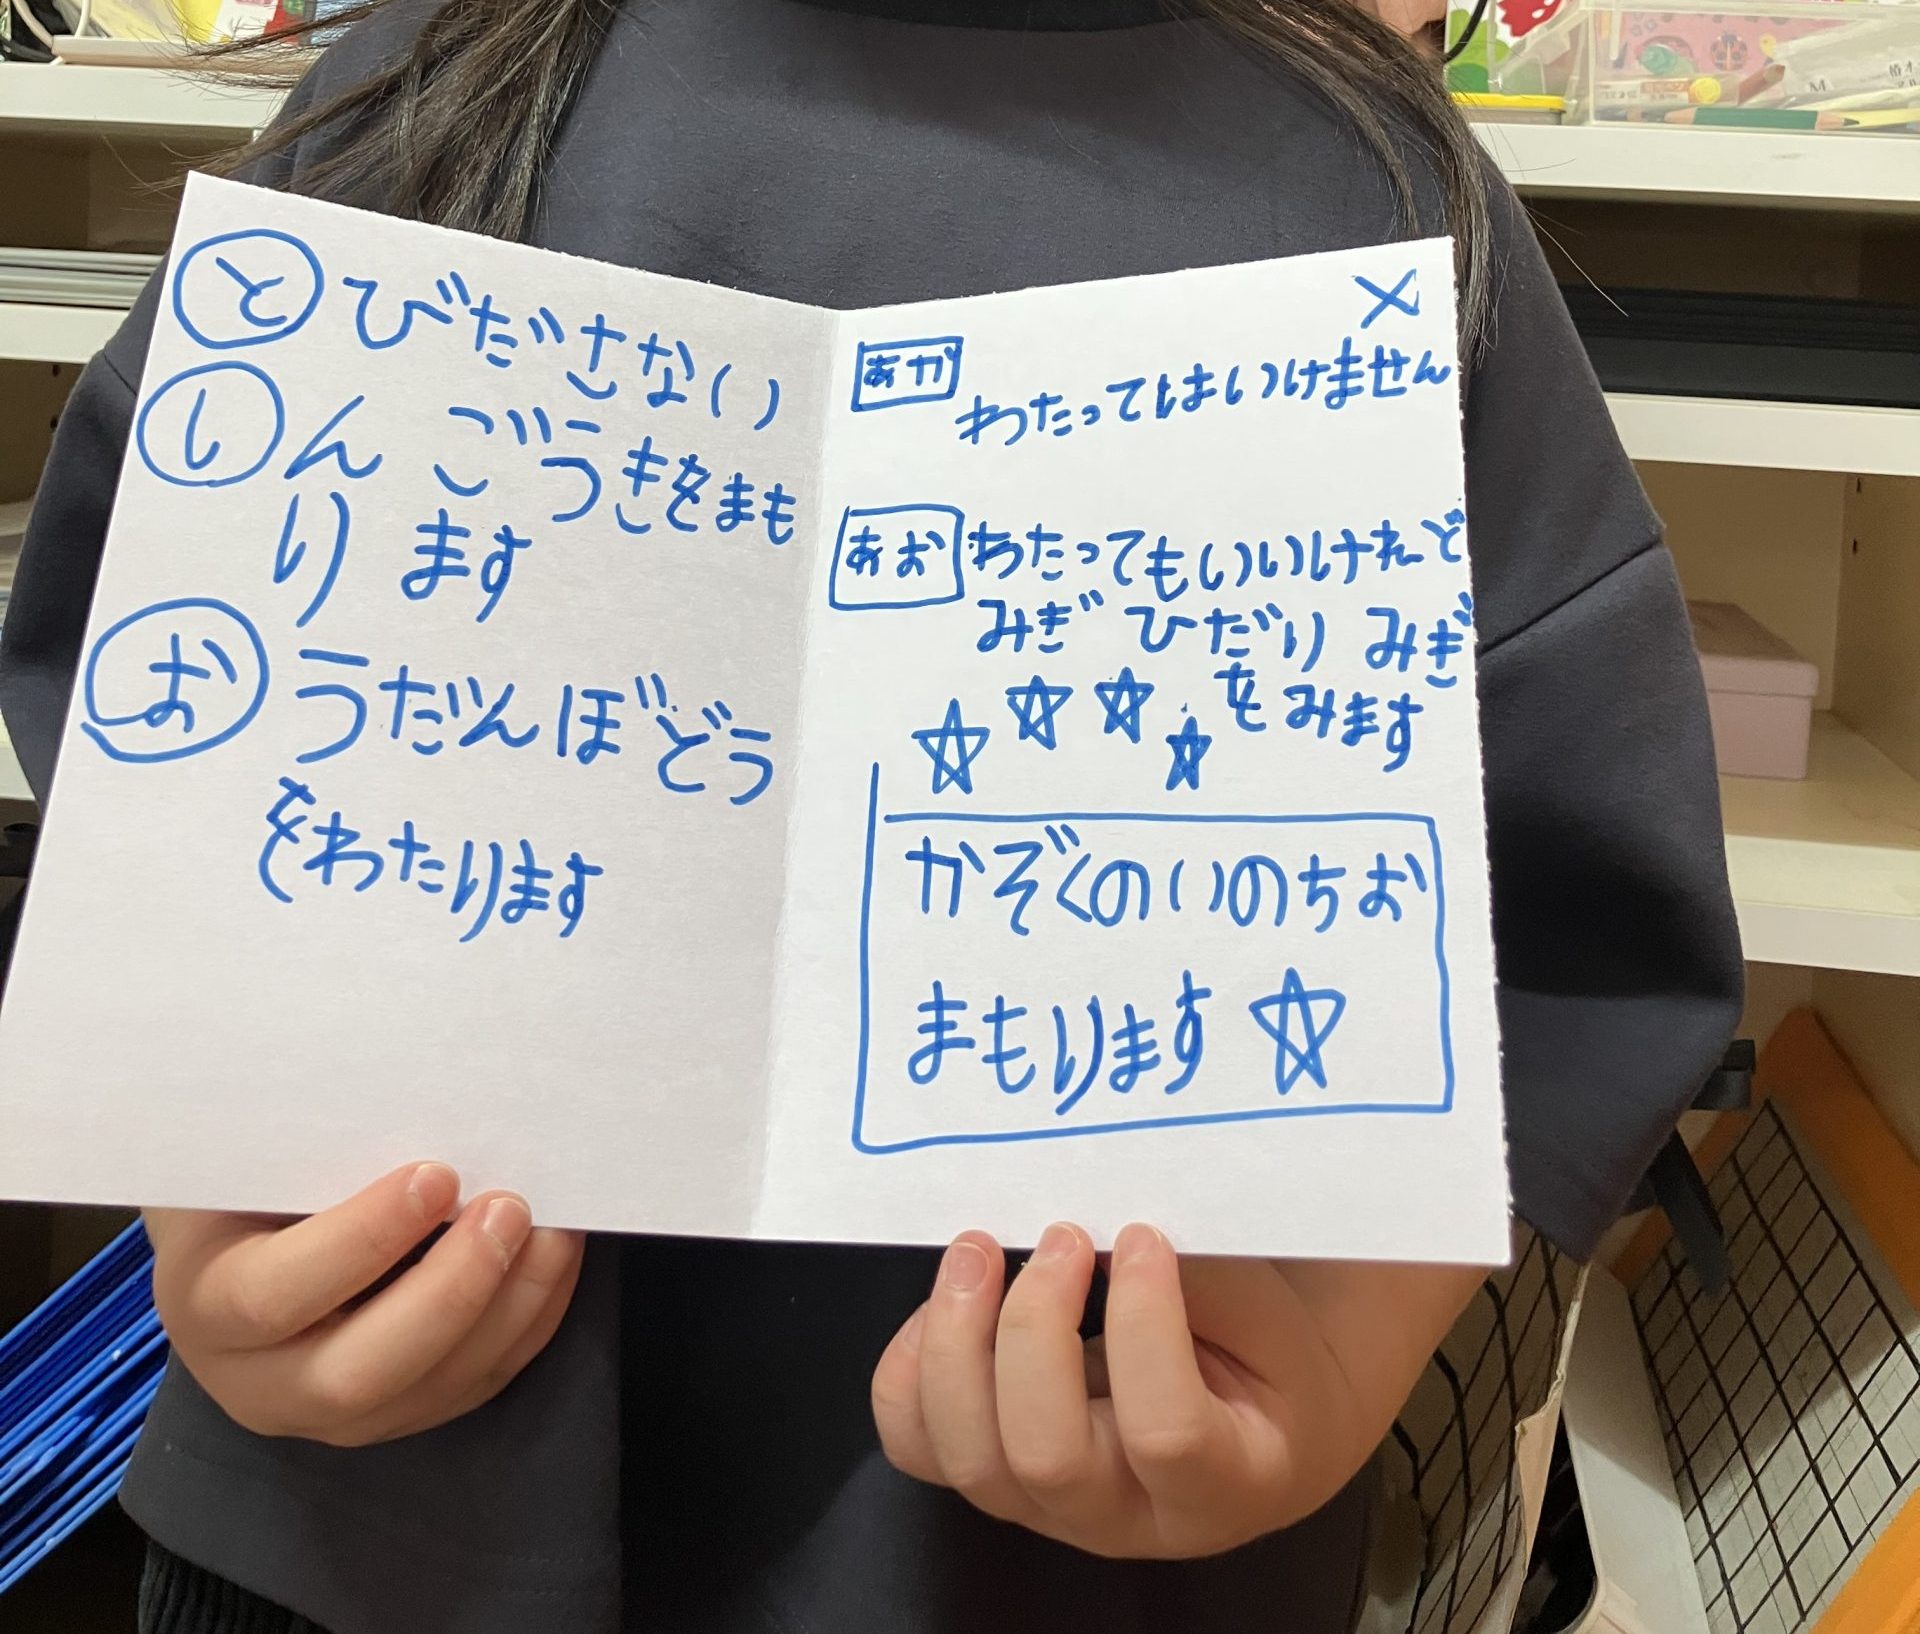 とびださない
しんごうきをまも
ります
おうだんほどう
をわたります
×
あか
わたってはいけません
あお わたってもいいけれど
みぎ ひだり みぎ
をみます
☆☆☆☆
かぞくのいのちお
まもります☆